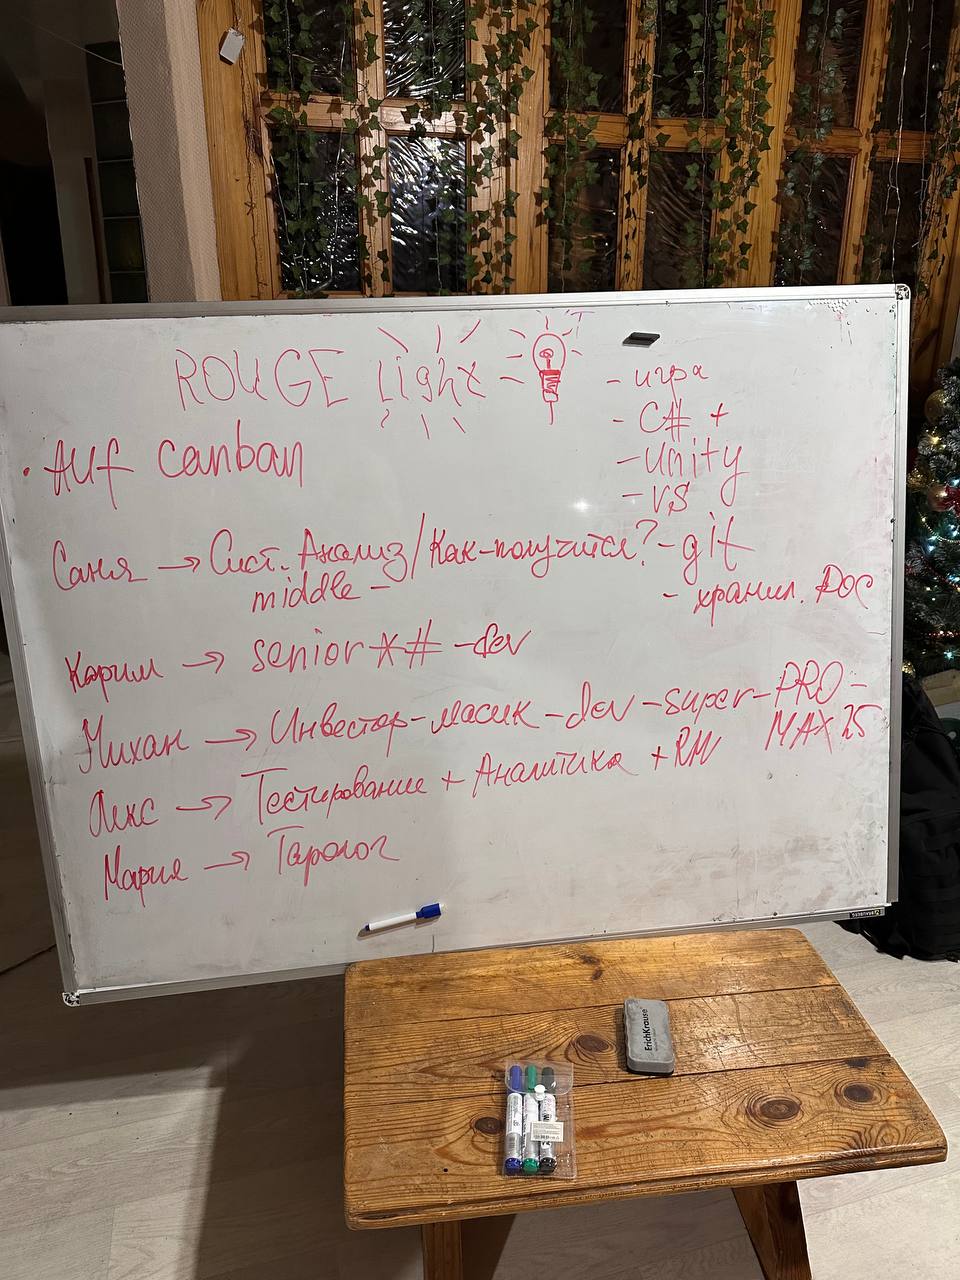 ROUGE light
- игра
- C# +
- Unity
- VS
- git
- хранил. DOC
• AUF canban
Саня → Сист. Анализ / Как-получится?
middle -
Карим → senior *# - dev
Михан → Инвестор - масик - dev - super - PRO -
MAX 25
Алкс → Тестирование + Аналитика +
Мария → Таролог
ErichKrause